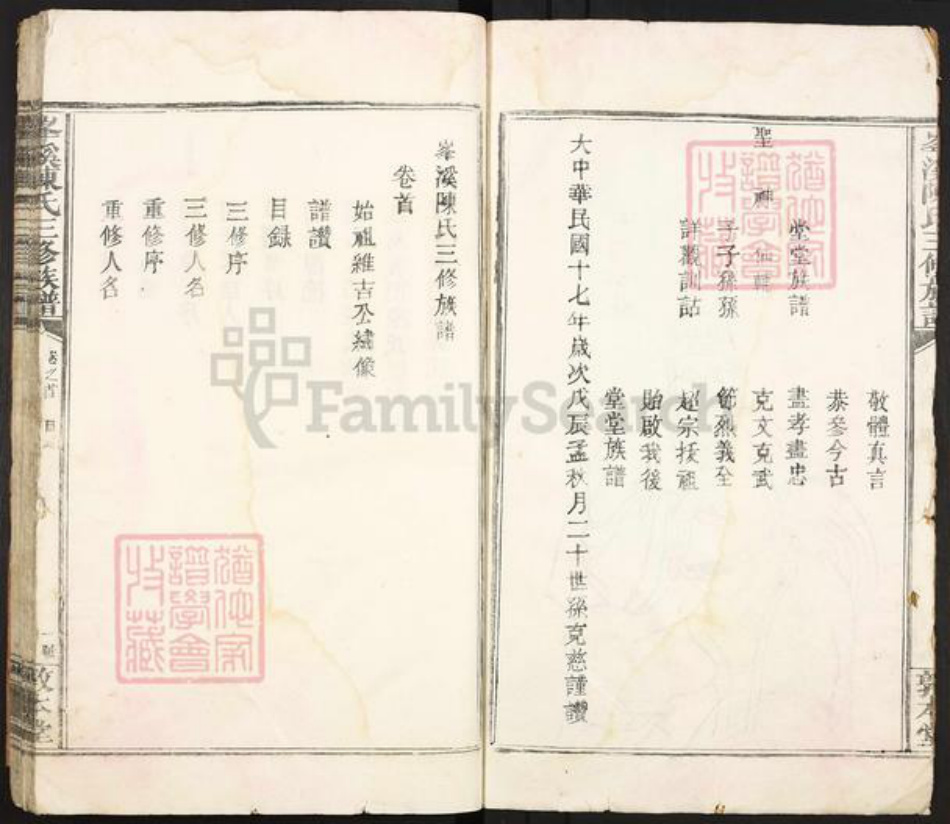 敬體真言
恭參今古
堂堂族譜
盡孝盡忠
聖神仙輔
克文克武
子子孫孫
節烈義全
詳觀訓詁
超宗扶祖
貽啟我後
堂堂族譜
大中華民國十七年歲次戊辰孟秋月二十世孫克慈謹讚
峯溪陳氏三修族譜
敦本堂
峯溪陳氏三修族譜
卷首
始祖雍吉公繡像
譜讚
目錄
三修序
三修人名
重修序
重修人名
峯溪陳氏三修族譜
卷之首
目
敦本堂
猶他家譜學會收藏
猶他家譜學會收藏
FamilySearch